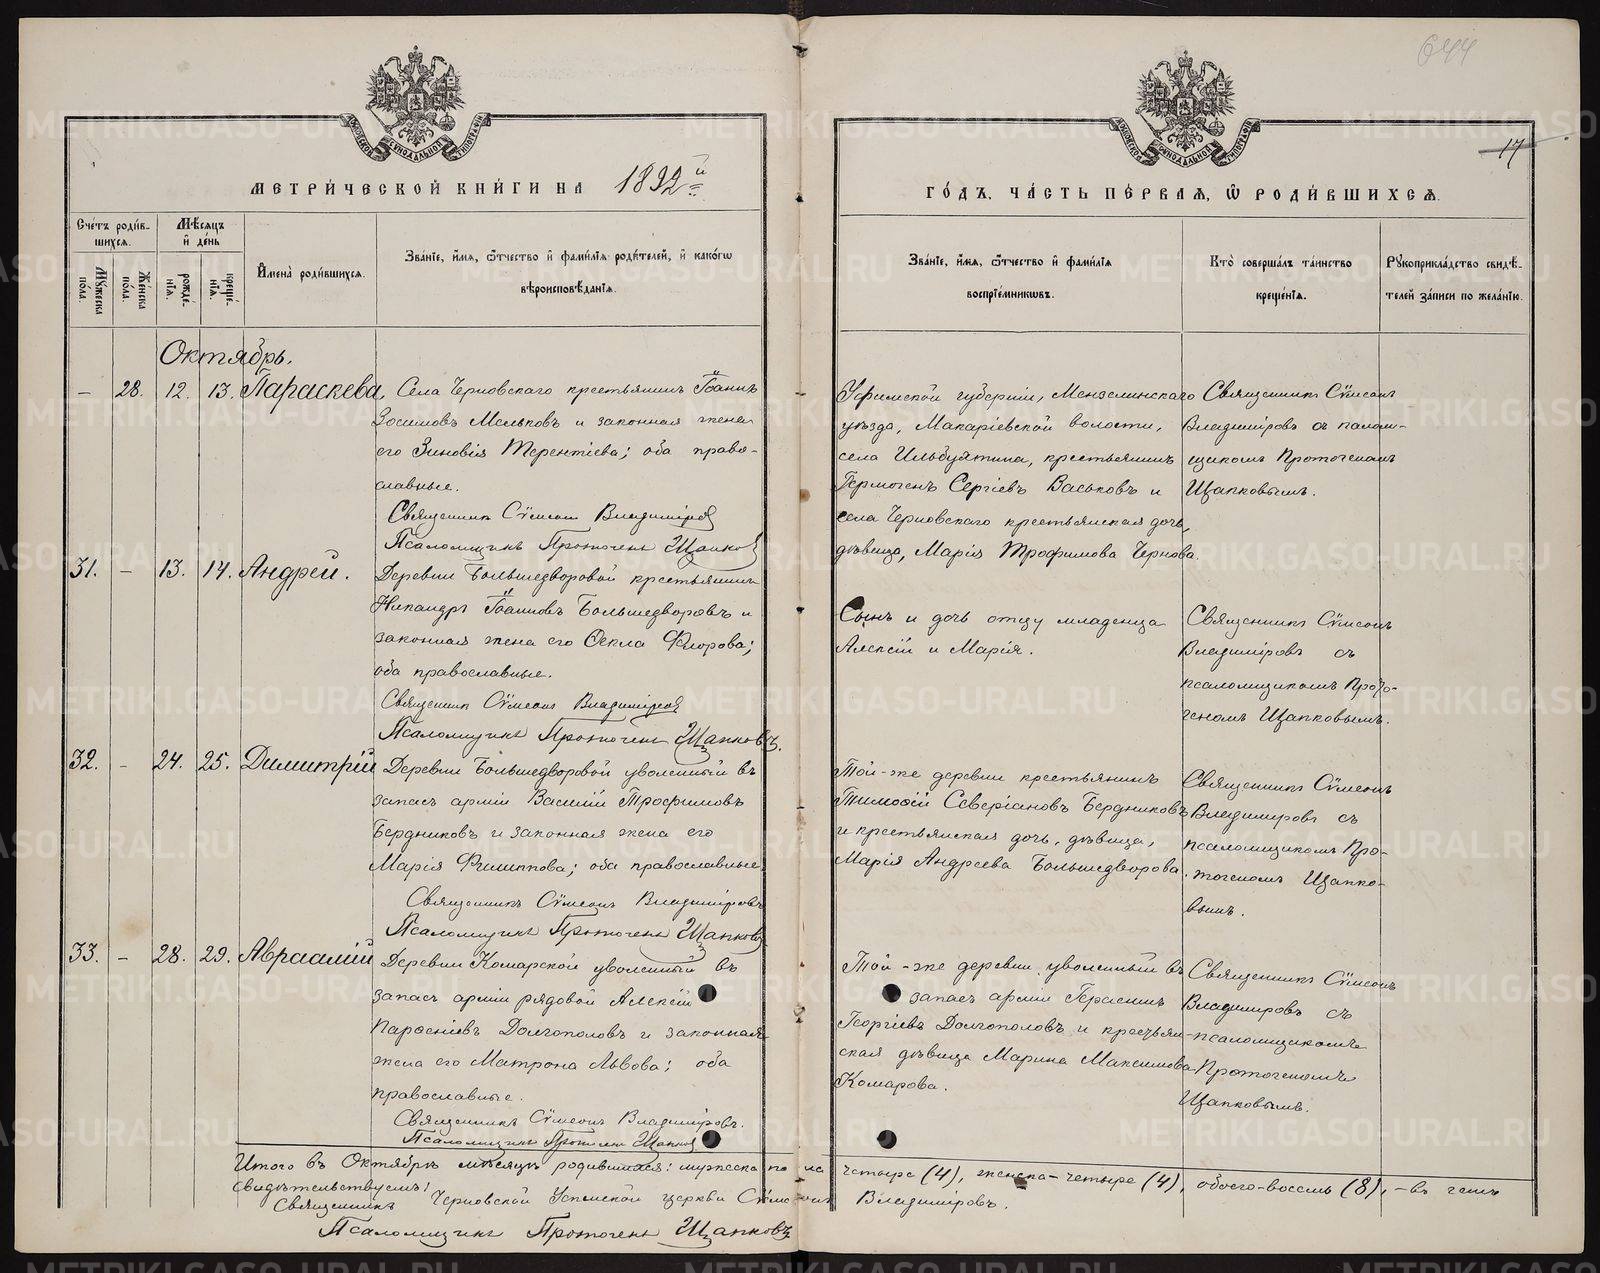 644
17
МЕТРИЧЕСКОЙ КНИГИ НА 1892й
ГОДЪ, ЧАСТЬ ПЕРВАЯ, Ѡ РОДИВШИХСЯ.
Счетъ родившихся.
Мужеска пола.
Женска пола.
Мѣсяцъ и день
рожденія.
крещенія.
Имена родившихся.
Званіе, имя, отчество и фамилія родителей, и какогѡ
вѣроисповѣданія.
Званіе, имя, отчество и фамилія
воспріемниковъ.
Кто совершалъ таинство
крещенія.
Рукоприкладство свидѣ-
телей записи по желанію.
Октябрь.
– 28. 12. 13. Параскева.
Села Черновскаго крестьянинъ Іоаннъ
Зосимовъ Мельковъ и законная жена
его Зиновія Терентіева; оба право-
славные.
Священникъ Сѵмеонъ Владиміровъ
Псаломщикъ Протогенъ Щапковъ
Уфимской губерніи, Мензелинскаго
уѣзда, Макаріевской волости,
села Ильбухтина, крестьянинъ
Гермогенъ Сергіевъ Васьковъ и
села Черновскаго крестьянская дочь,
дѣвица, Марія Трофимова Чернова.
Священникъ Сѵмеонъ
Владиміровъ съ псалом-
щикомъ Протогеномъ
Щапковымъ.
31. – 13. 14. Андрей.
Деревни Большедворовой крестьянинъ
Никандръ Іоанновъ Большедворовъ и
законная жена его Ѳекла Флорова;
оба православные.
Священникъ Сѵмеонъ Владиміровъ
Псаломщикъ Протогенъ Щапковъ.
Сынъ и дочь отцу младенца
Алексій и Марія.
Священникъ Сѵмеонъ
Владиміровъ съ
псаломщикомъ Прото-
геномъ Щапковымъ.
32. – 24. 25. Димитрій
Деревни Большедворовой уволенный въ
запасъ арміи Василій Трофимовъ
Бердниковъ и законная жена его
Марія Филиппова; оба православные.
Священникъ Сѵмеонъ Владиміровъ
Псаломщикъ Протогенъ Щапковъ
Той-же деревни крестьянинъ
Тимоѳей Северіановъ Бердниковъ
и крестьянская дочь, дѣвица,
Марія Андреева Большедворова.
Священникъ Сѵмеонъ
Владиміровъ съ
псаломщикомъ Про-
тогеномъ Щапко-
вымъ.
33. – 28. 29. Авраамій
Деревни Комарской уволенный въ
запасъ арміи рядовой Алексій
Парѳеніевъ Долгополовъ и законная
жена его Матрона Львова; оба
православные.
Священникъ Сѵмеонъ Владиміровъ.
Псаломщикъ Протогенъ Щапковъ
Той-же деревни уволенный въ
запасъ арміи Герасимъ
Георгіевъ Долгополовъ и крестьян-
ская дѣвица Марина Максимова
Комарова.
Священникъ Сѵмеонъ
Владиміровъ съ
псаломщикомъ
Протогеномъ
Щапковымъ.
Итого въ Октябрѣ мѣсяцѣ родившихся: мужеска пола четыре (4), женска-четыре (4), обоего-восемь (8), – въ чемъ
свидѣтельствуемъ:
Священникъ Черновской Успенской церкви Сѵмеонъ Владиміровъ.
Псаломщикъ Протогенъ Щапковъ
METRIKI.GASO-URAL.RU